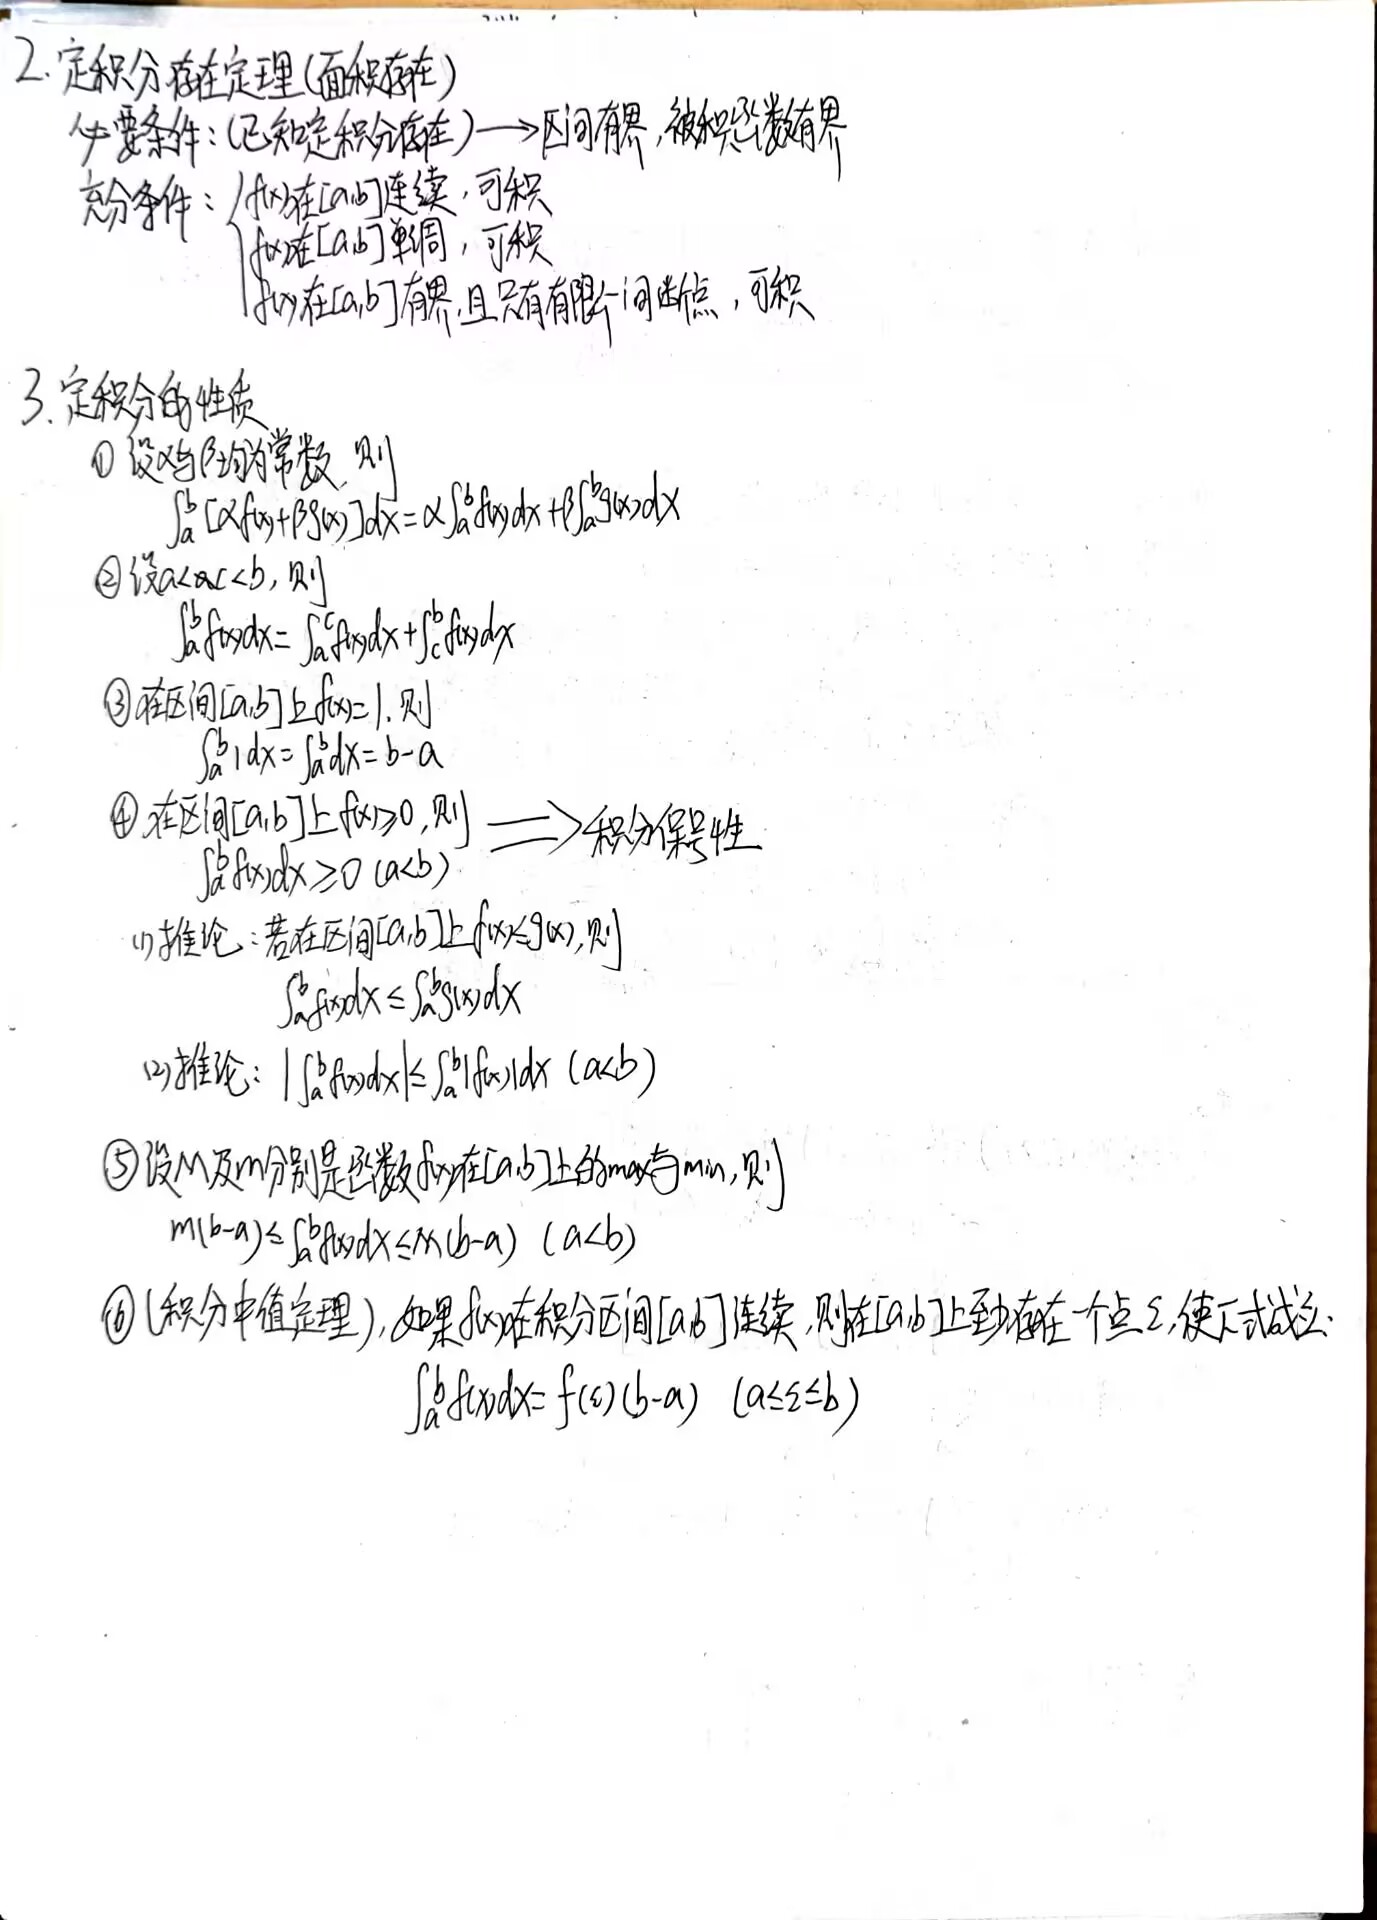 2. 定积分存在定理(面积存在)
必要条件:(已知定积分存在)⟶区间有界,被积函数有界
充分条件:{f(x)在[a,b]连续,可积
f(x)在[a,b]单调,可积
f(x)在[a,b]有界,且只有有限个间断点,可积
3. 定积分的性质
① 设α与β均为常数,则
∫ₐᵇ[αf(x)+βg(x)]dx=α∫ₐᵇf(x)dx+β∫ₐᵇg(x)dx
② 设a<c<b,则
∫ₐᵇf(x)dx=∫ₐᶜf(x)dx+∫_c^b f(x)dx
③ 在区间[a,b]上f(x)=1,则
∫ₐᵇ1dx=∫ₐᵇdx=b-a
④ 在区间[a,b]上f(x)≥0,则 ⟹积分保号性
∫ₐᵇf(x)dx≥0 (a<b)
(1)推论:若在区间[a,b]上f(x)≤g(x),则
∫ₐᵇf(x)dx≤∫ₐᵇg(x)dx
(2)推论:|∫ₐᵇf(x)dx|≤∫ₐᵇ|f(x)|dx (a<b)
⑤ 设M及m分别是函数f(x)在[a,b]上的max与min,则
m(b-a)≤∫ₐᵇf(x)dx≤M(b-a) (a<b)
⑥ (积分中值定理),如果f(x)在积分区间[a,b]连续,则在[a,b]上至少存在一个点ξ,使下式成立.
∫ₐᵇf(x)dx=f(ξ)(b-a) (a≤ξ≤b)